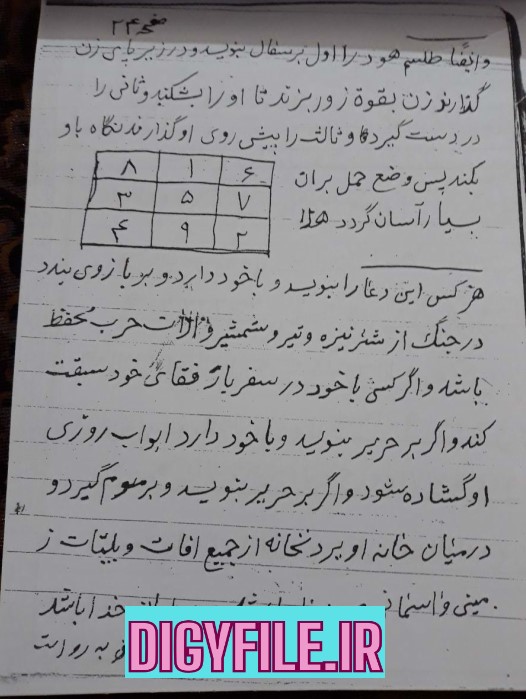 صفحه ۲۴
وایضًا طلسم هود را اول بر سفال بنویسد و در زیر پای زن
گذارند زن بقوة زور بزند تا او را بشکند و ثانی را
در دست گیرد و ثالث را پیش روی او گذارند نگاه باو
بکند پس وضع حمل بر ان
بسیار آسان گردد هذا
۸ ۱ ۶
۳ ۵ ۷
۴ ۹ ۲
هر کس این دعا را بنویسد و با خود دارد و بر بازوی بندد
در جنک از شر نیزه و تیر و شمشیر و الات حرب محفظ
باشد و اگر کسی با خود در سفر باز رفقای خود سبقت
کند و اگر بر حریر بنوید و با خود دارد ابواب روزی
او گشاده شود و اگر بر حریر بنوید و بر موم گیرد و
درمیان خانه او برد نخانه از جمیع افات و بلیّات ز
مینی و اسمانی خدا باشد
روایت
DIGYFILE.IR